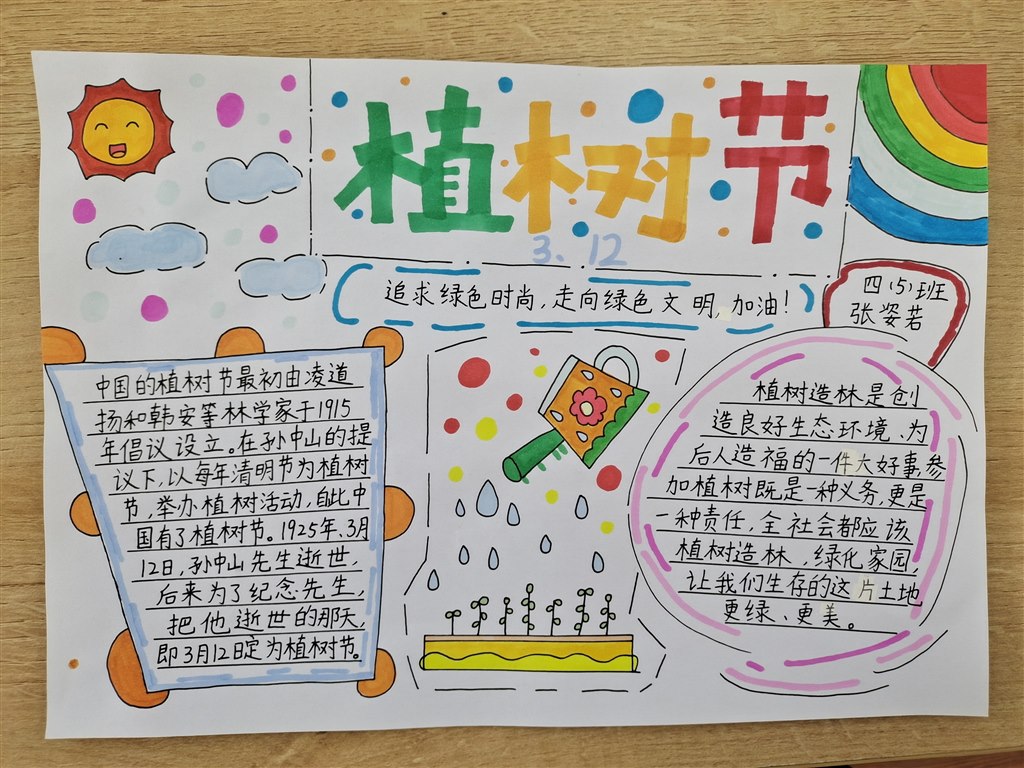 植树节
3、12
追求绿色时尚,走向绿色文明,加油!
四(5)班
张姿若
中国的植树节最初由凌道
扬和韩安等林学家于1915
年倡议设立。在孙中山的提
议下,以每年清明节为植树
节,举办植树活动,自此中
国有了植树节。1925年.3月
12日,孙中山先生逝世,
后来为了纪念先生,
把他逝世的那天,
即3月12日定为植树节。
植树造林是创
造良好生态环境、为
后人造福的一件大好事,参
加植树既是一种义务,更是
一种责任,全社会都应该
植树造林,绿化家园,
让我们生存的这片土地
更绿、更美。